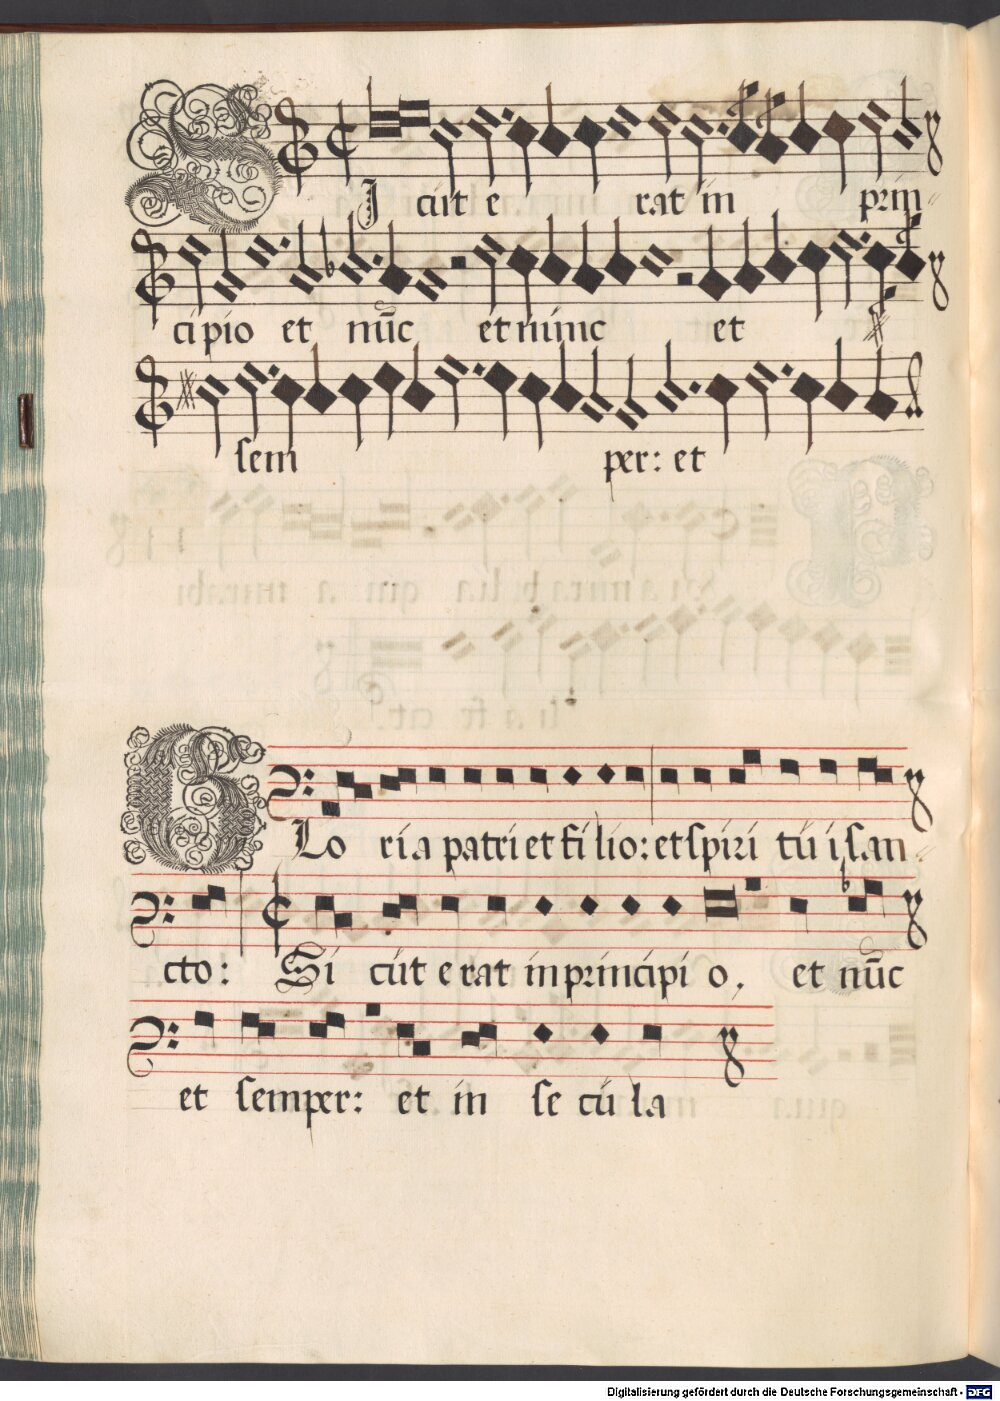 SJ cut e rat in prin
cipio et nūc et nunc et
sem per: et
GLo ri a patri et fi lio: et spiri tui san
cto: Si cut e rat in principi o, et nūc
et semper: et in se cu la
Digitalisierung gefördert durch die Deutsche Forschungsgemeinschaft - DFG